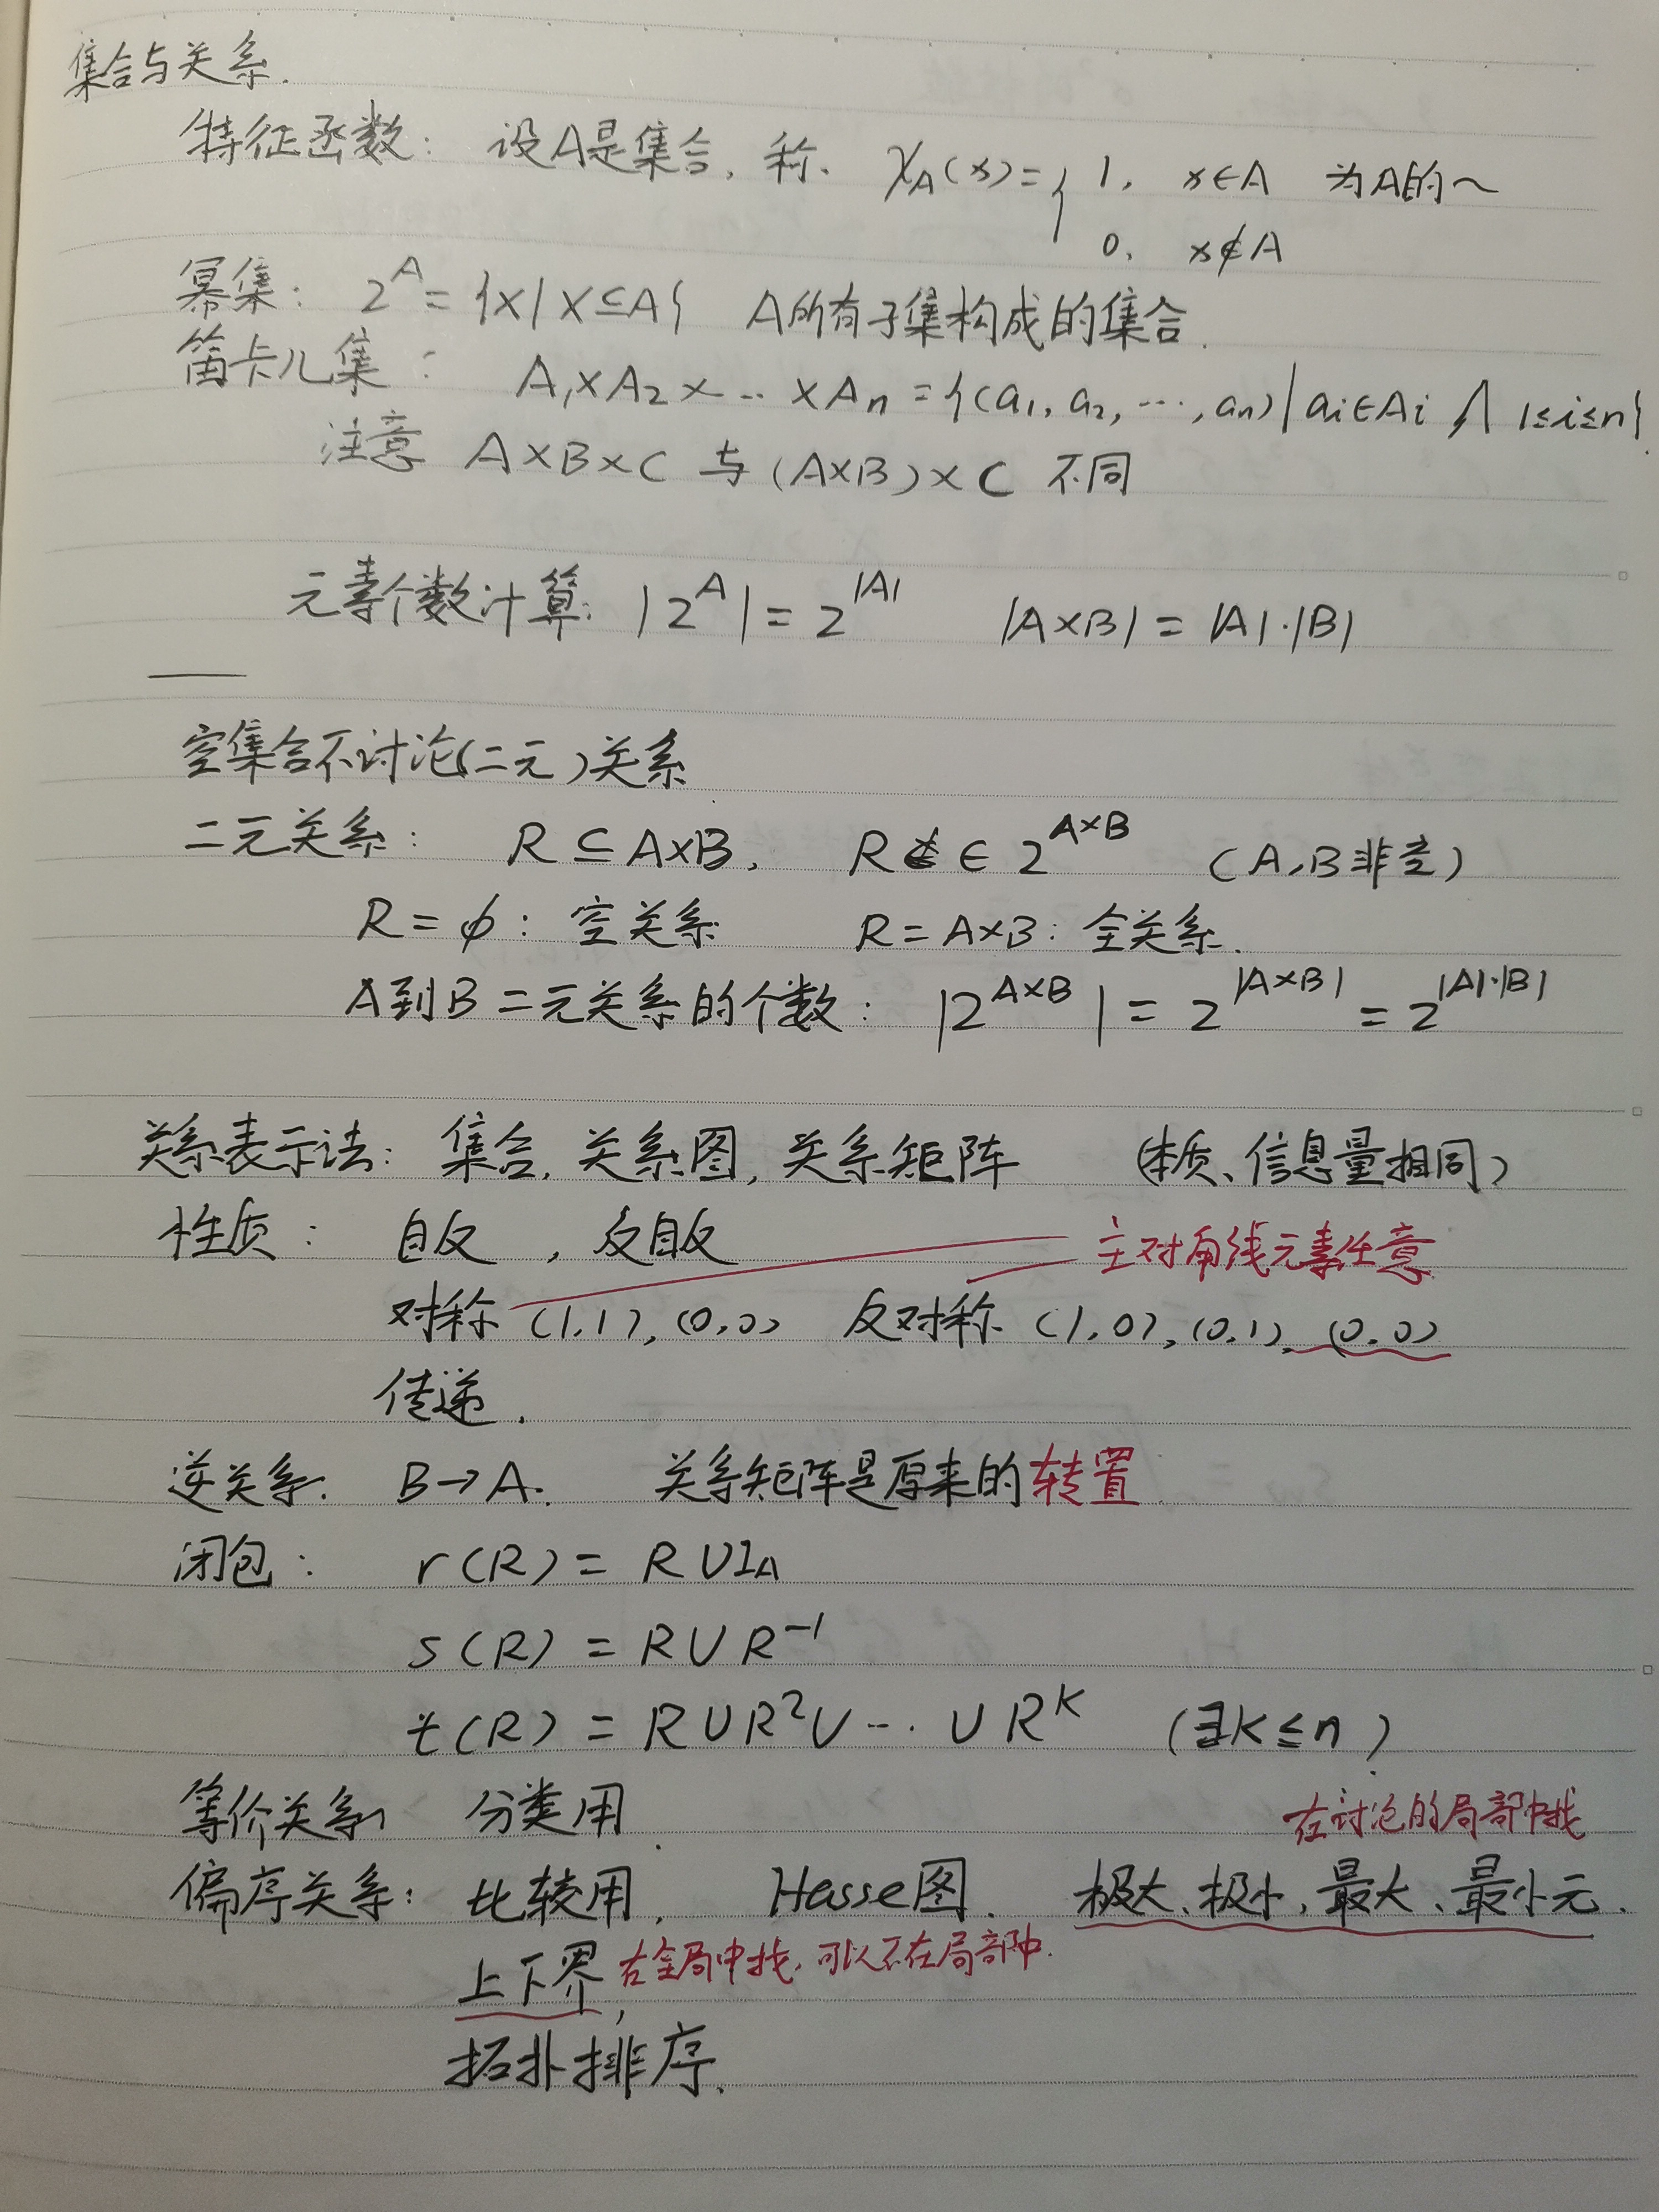 集合与关系.
特征函数: 设A是集合, 称. χ_A(x)={ 1, x∈A 为A的~
0, x∉A
幂集: 2^A={X|X⊆A} A所有子集构成的集合.
笛卡儿集: A₁×A₂×…×Aₙ={(a₁,a₂,…,aₙ)|aᵢ∈Aᵢ ∧ 1≤i≤n}.
注意 A×B×C 与 (A×B)×C 不同
元素个数计算: |2^A|=2^|A| |A×B|=|A|·|B|
空集合不讨论(二元)关系
二元关系: R⊆A×B, R∈2^(A×B) (A,B非空)
R=φ: 空关系 R=A×B: 全关系.
A到B二元关系的个数: |2^(A×B)|=2^|A×B|=2^(|A|·|B|)
关系表示法: 集合, 关系图, 关系矩阵 (本质、信息量相同)
性质: 自反, 反自反 主对角线元素任意
对称 (1,1),(0,0) 反对称 (1,0),(0,1),(0,0)
传递.
逆关系: B→A. 关系矩阵是原来的转置.
闭包: r(R)=R∪I_A
s(R)=R∪R⁻¹
t(R)=R∪R²∪…∪R^K (∃K≤n)
等价关系 分类用.
在讨论的局部中找
偏序关系: 比较用, Hasse图. 极大、极小,最大、最小元.
上下界, 在全局中找,可以不在局部中.
拓扑排序.